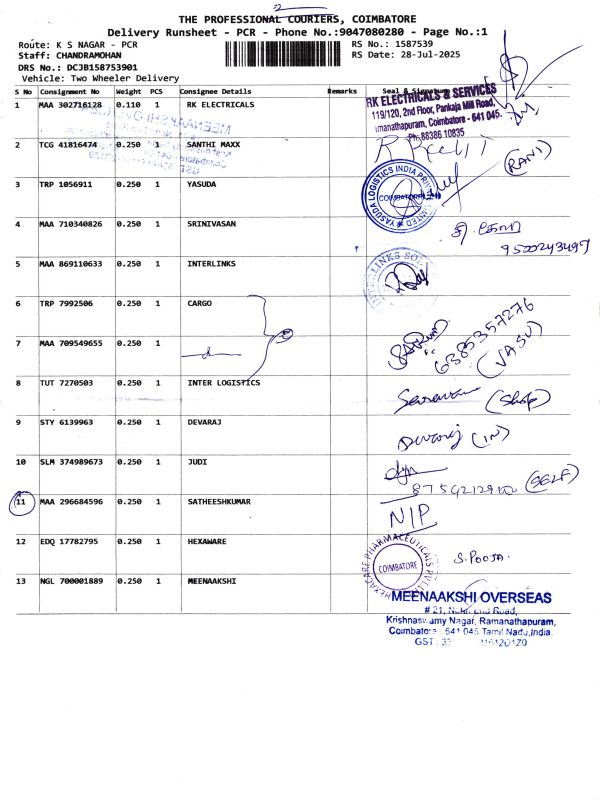 THE PROFESSIONAL COURIERS, COIMBATORE
Delivery Runsheet - PCR - Phone No.:9047080280 - Page No.:1
Route: K S NAGAR - PCR RS No.: 1587539
Staff: CHANDRAMOHAN RS Date: 28-Jul-2025
DRS No.: DCJB158753901
Vehicle: Two Wheeler Delivery
S No Consignment No Weight PCS Consignee Details Remarks Seal & Signature
1 MAA 302716128 0.110 1 RK ELECTRICALS
RK ELECTRICALS & SERVICES
119/120, 2nd Floor, Pankaja Mill Road,
Ramanathapuram, Coimbatore - 641 045.
Ph:88386 10835
2 TCG 41816474 0.250 1 SANTHI MAXX
(RANI)
3 TRP 1056911 0.250 1 YASUDA
YASUDA LOGISTICS INDIA PRIVATE LIMITED
COIMBATORE
4 MAA 710340826 0.250 1 SRINIVASAN
9500243497
5 MAA 869110633 0.250 1 INTERLINKS
INTERLINKS
6 TRP 7992506 0.250 1 CARGO
6385357276
(VASU)
7 MAA 709549655 0.250 1
8 TUT 7270503 0.250 1 INTER LOGISTICS
(Shop)
9 STY 6139963 0.250 1 DEVARAJ
Devaraj (IN)
10 SLM 374989673 0.250 1 JUDI
(SELF)
11 MAA 296684596 0.250 1 SATHEESHKUMAR
NIP
12 EDQ 17782795 0.250 1 HEXAWARE
HEXACARE PHARMACEUTICALS PVT LTD
COIMBATORE
S. POOJA.
13 NGL 700001889 0.250 1 MEENAAKSHI
MEENAAKSHI OVERSEAS
# 21, Road,
Krishnaswamy Nagar, Ramanathapuram,
Coimbatore - 641 045 Tamil Nadu, India.
GST : 33